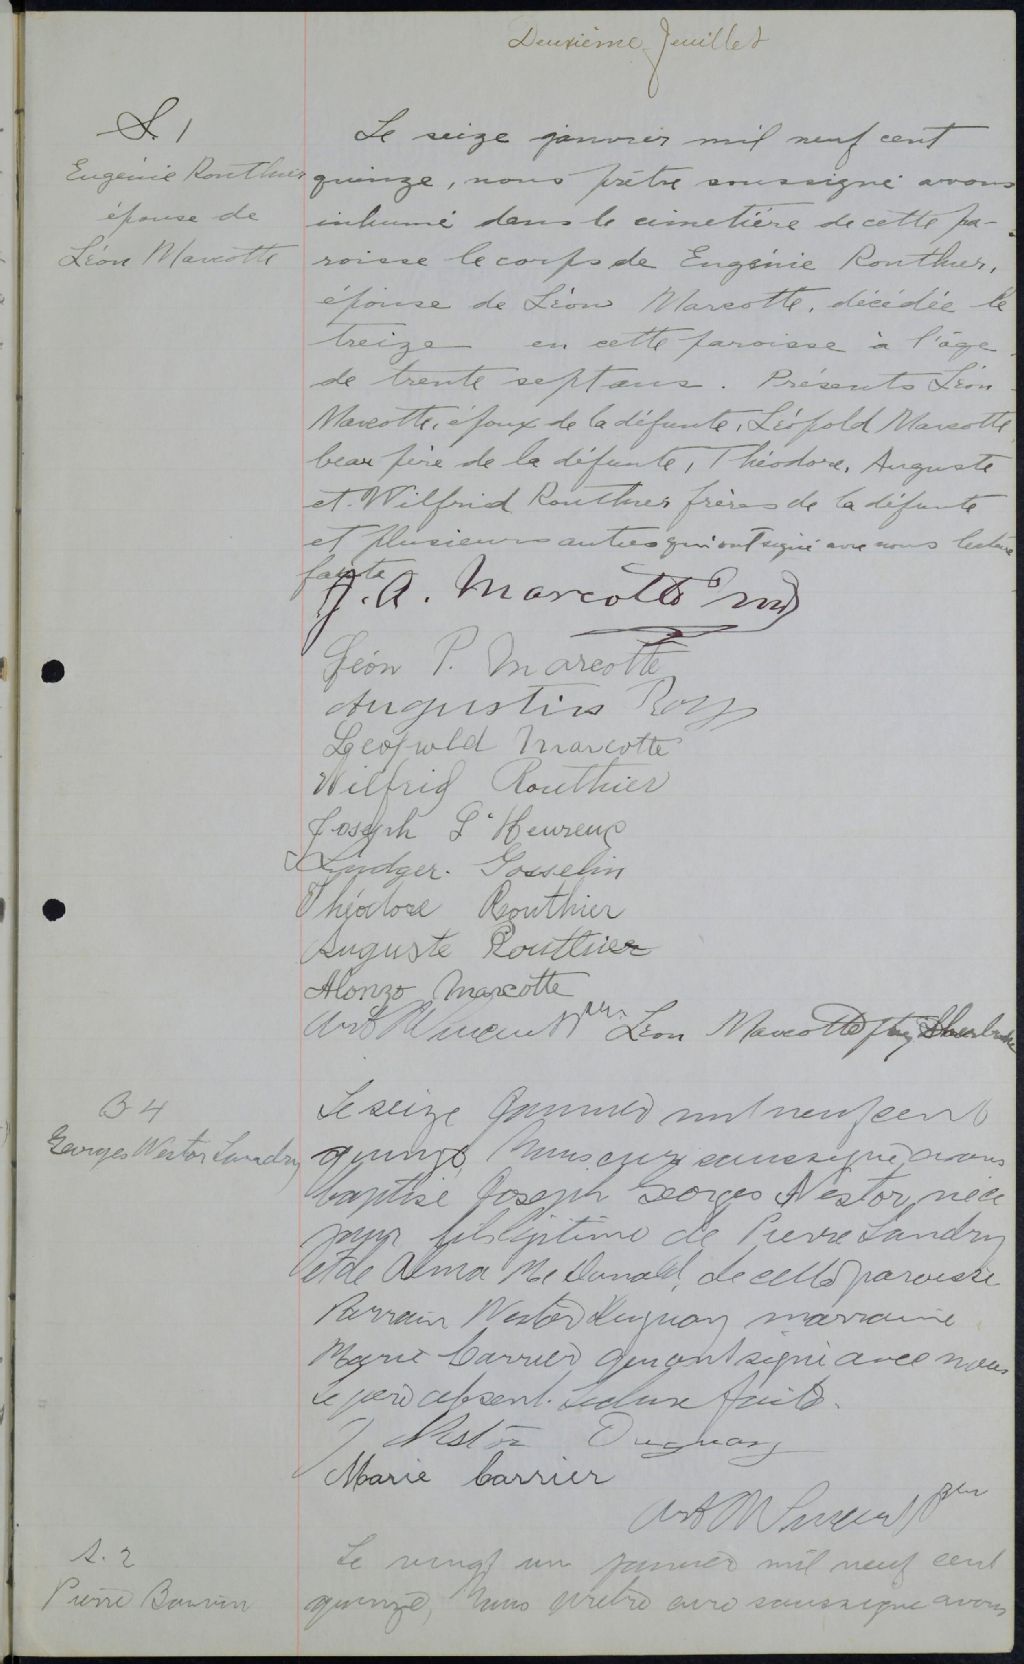 Deuxième feuillet
S 1
Eugénie Routhier
épouse de
Léon Marcotte
Le seize janvier mil neuf cent
quinze, nous prêtre soussigné avons
inhumé dans le cimetière de cette pa-
roisse le corps de Eugénie Routhier,
épouse de Léon Marcotte, décédée le
treize en cette paroisse à l'âge
de trente sept ans. Présents Léon
Marcotte, époux de la défunte, Léopold Marcotte,
beau père de la défunte, Théodore, Auguste
et Wilfrid Routhier frères de la défunte
et plusieurs autres qui ont signé avec nous lecture
faite
J. A. Marcotte
Léon P. Marcotte
Augustin Roy
Leopold Marcotte
Wilfrid Routhier
Joseph L'Heureux
Ludger Gosselin
Théodore Routhier
Auguste Routhier
Alonzo Marcotte
Léon Marcotte ptre Sherbrooke
B 4
Georges Nestor Landry
Le seize janvier mil neuf cent
quinze, Nous curé soussigné avons
baptisé Joseph Georges Nestor, né ce
jour fils légitime de Pierre Landry
et de Alma McDonald, de cette paroisse
Parrain Nestor Duguay marraine
Marie Carrier qui ont signé avec nous
le père absent. Lecture faite.
Nestor Duguay
Marie Carrier
S. 2
Pierre
Le vingt un janvier mil neuf cent
quinze, Nous prêtre curé soussigné avons